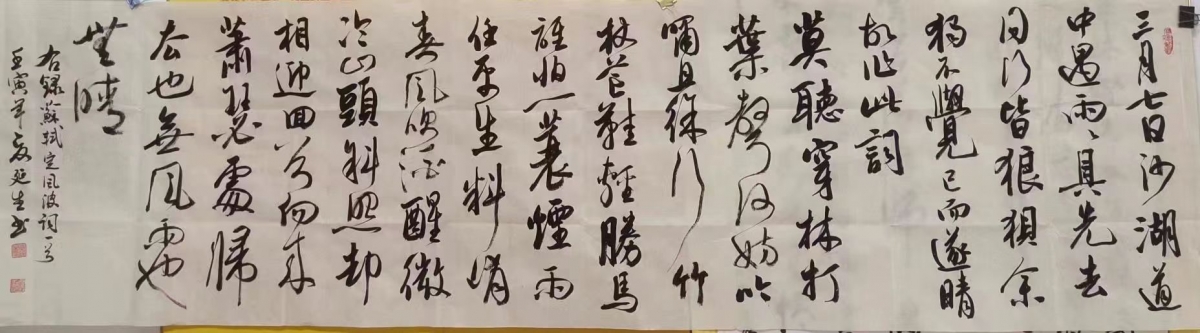 三月七日沙湖道
中遇雨〻具先去
同行皆狼狽余
獨不覺已而遂晴
故作此詞
莫聽穿林打
葉聲何妨吟
嘯且徐行竹
杖芒鞋輕勝馬
誰怕一蓑煙雨
任平生料峭
春風吹酒醒微
冷山頭斜照却
相迎回首向來
蕭瑟處歸
去也無風雨也
無晴
右錄蘇軾定風波詞一首
壬寅年夏延生书